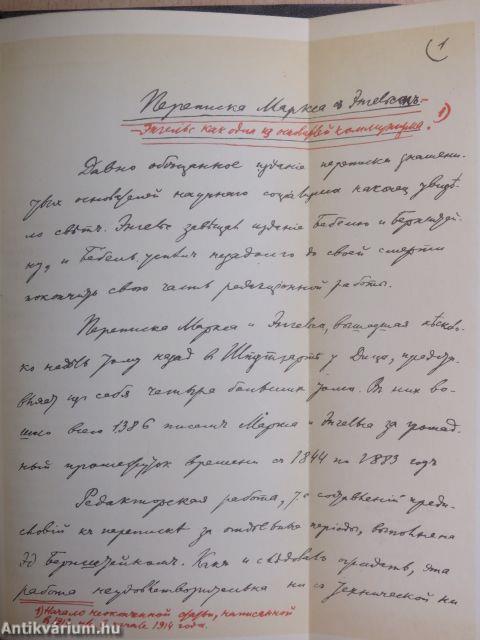 (1
Переписка Маркса с Энгельсомъ.–
–Энгельс как один из основателей коммунизма. 1)
Давно обещанное издание переписки знамени-
тых основателей научного социализма наконец увидѣ-
ло свѣтъ. Энгельс завещал издание Бебелю и Бернштей-
ну, и Бебель успел незадолго до своей смерти
закончить свою часть редакционной работы.
Переписка Маркса и Энгельса, вышедшая нѣсколь-
ко недѣль тому назад в Штутгарте у Дица, предста-
вляет из себя четыре больших тома. В них во-
шло всего 1386 писемъ Маркса и Энгельса за громад-
ный промежуток времени с 1844 по 1883 годъ
Редакторская работа, т.е. составление преди-
словий къ переписке за отдельные периоды, выполнена
Эд. Бернштейном. Как и следовало ожидать, эта
работа неудовлетворительна ни с технической ни
1) Начало неоконченной статьи, написанной
в 1913 или в начале 1914 года.
Antikvárium.hu